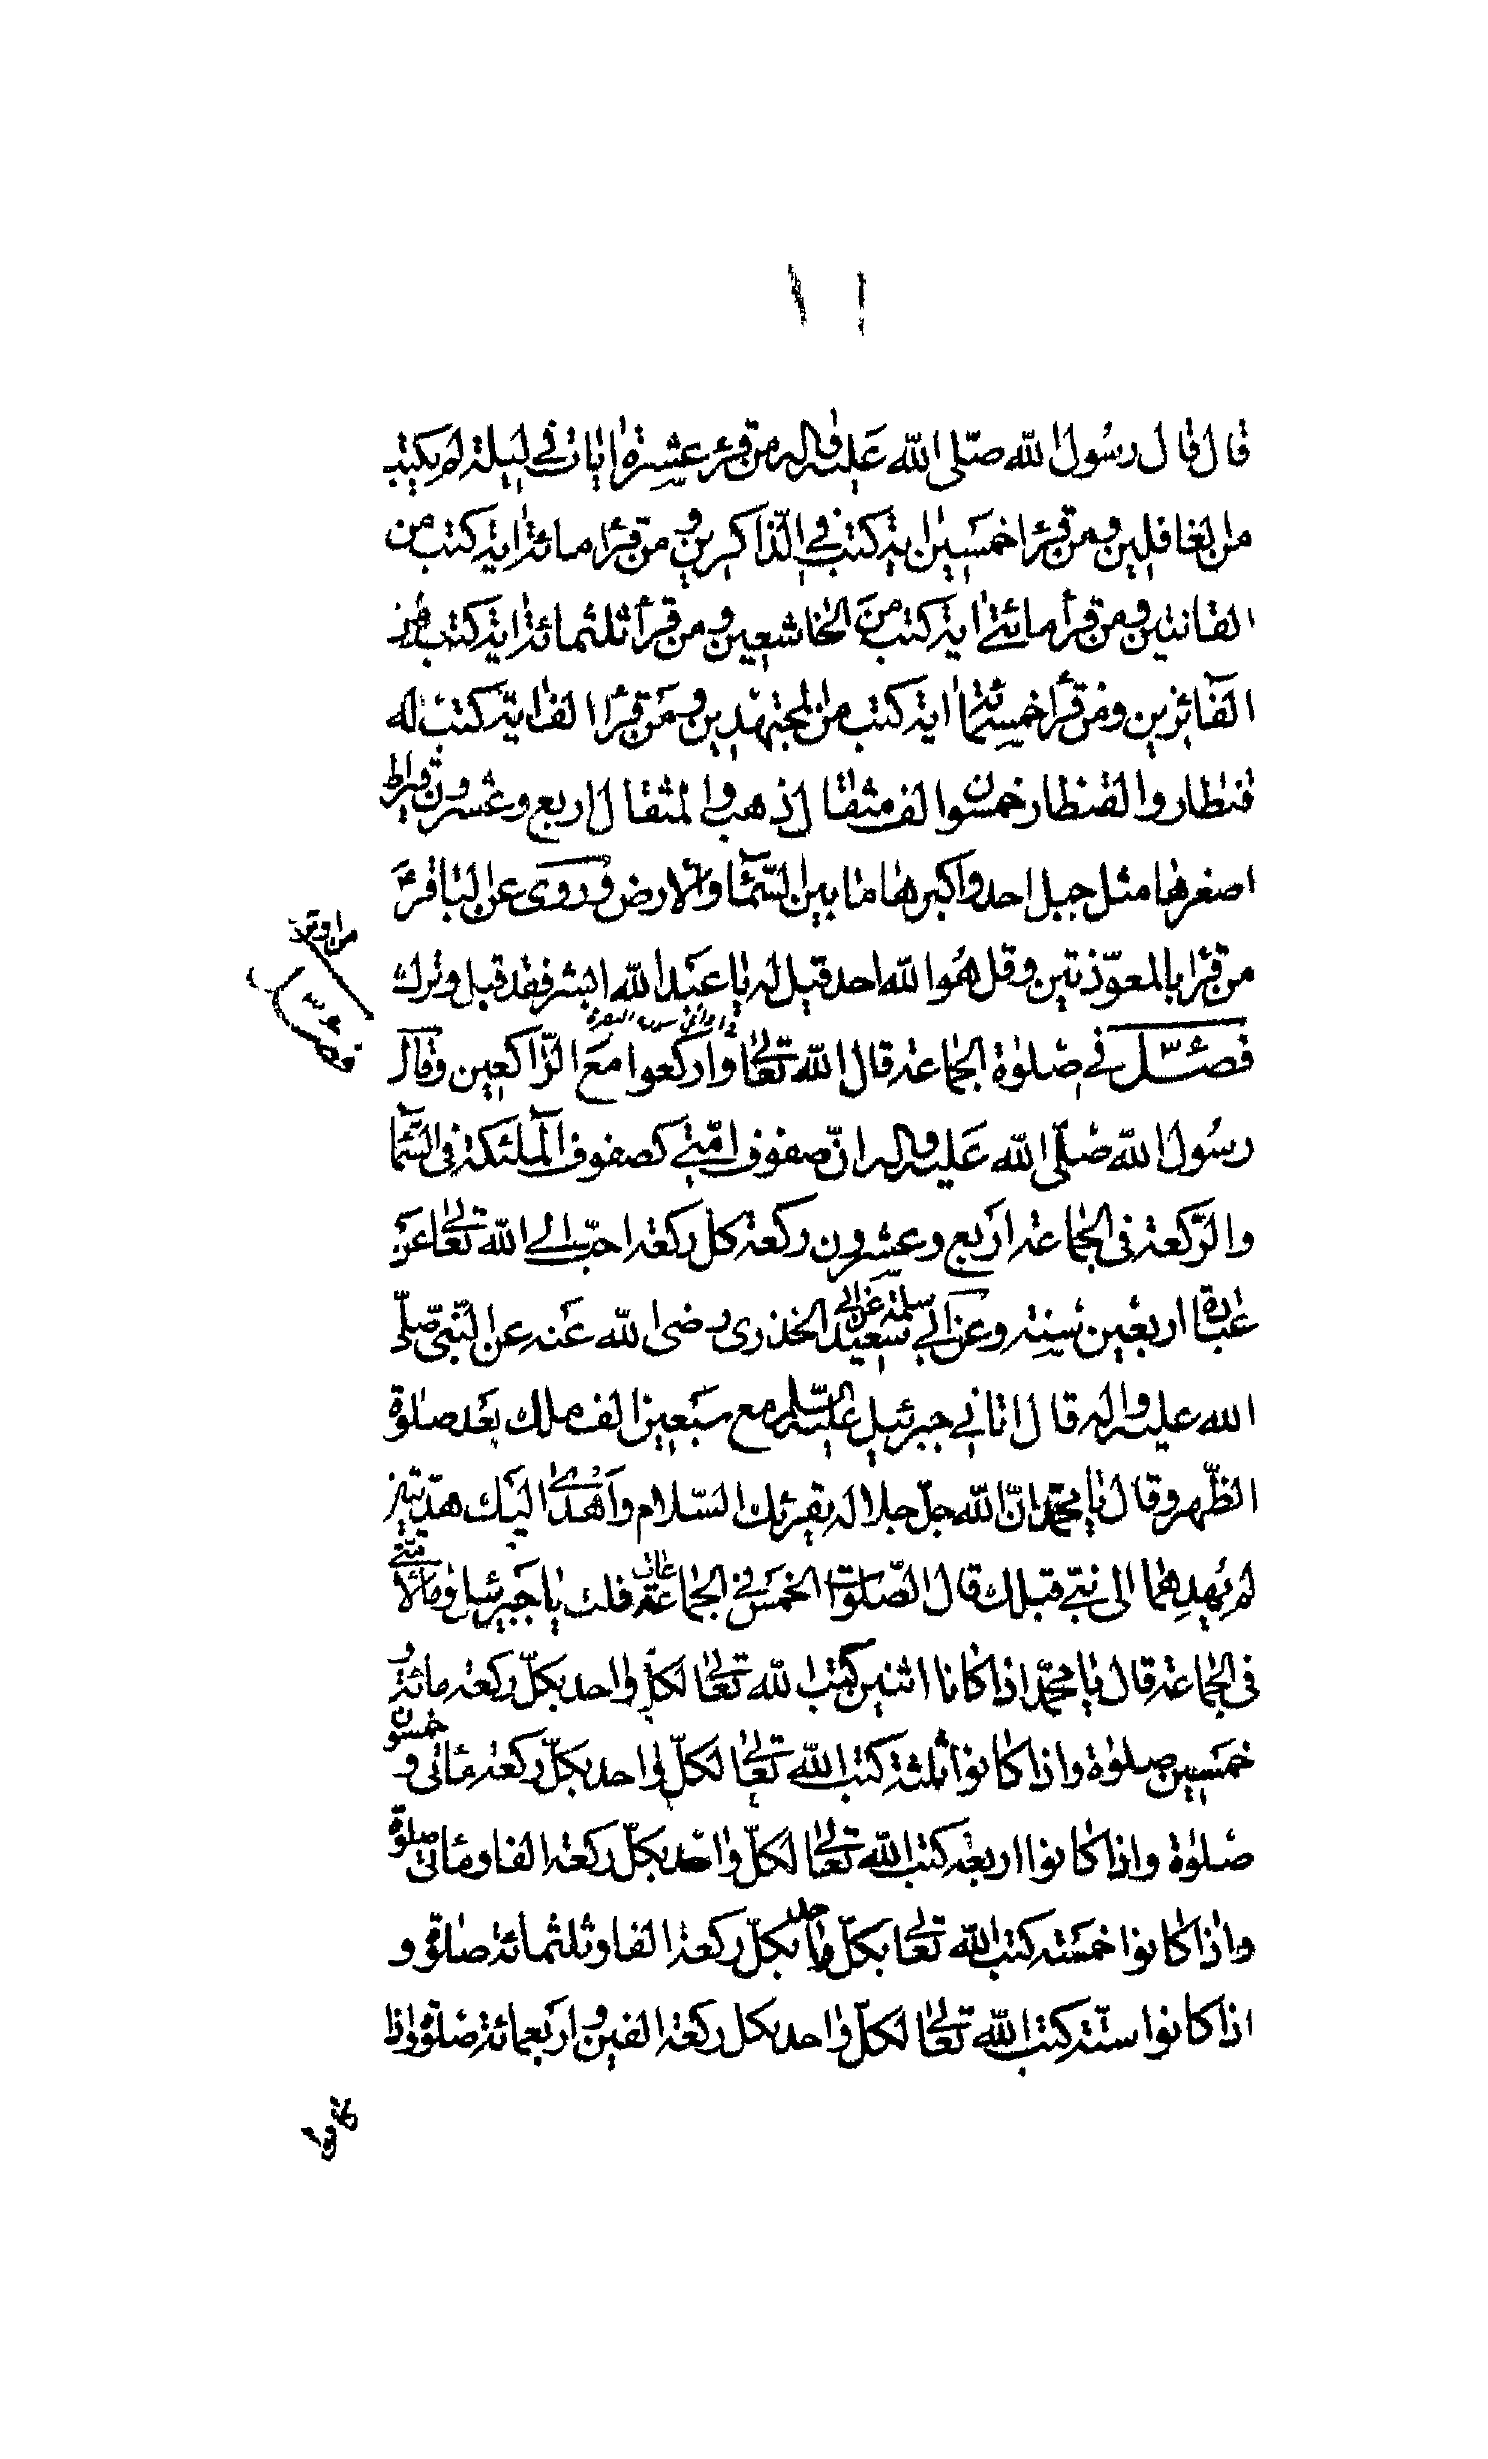 ١١
قال قال رسول الله صلّى الله عليه واله من قرء عشرة ايات في ليلة لم يكتب
من الغافلين ومن قرئا خمسين اية كتب في الذّاكرين ومن قرئا مائة اية كتب من
القانتين ومن قرأ مائتي اية كتب من الخاشعين ومن قرأ ثلثمائة اية كتب من
الفآئزين ومن قرأ خمسمائة اية كتب من المجتهدين ومن قرئا الف اية كتب له
قنطار والقنطار خمسون الف مثقال ذهب والمثقال اربع وعشرون قيراط
اصغرها مثل جبل احد واكبرها ما بين السّمآء والارض وروى عن الباقر ع
من اوتر
من قرئا بالمعوّذتين وقل هو الله احد قيل له يا عبد الله ابشر فقد قبل وترك
فصل
فصل في صلوة الجماعة قال الله تعالى واركعوا مع الرّاكعين وقال
رسول الله صلّى الله عليه واله انّ صفوف امّتي كصفوف الملئكة في السّمآء
والرّكعة في الجماعة اربع وعشرون ركعة كل ركعة احبّ الى الله تعالى من
عبادة اربعين سنة وعن ابي سلمة عن ابي سعيد الخدرى رضى الله عنه عن النّبي صلّى
الله عليه واله قال اتاني جبرئيل عليه السّلم مع سبعين الف ملك بعد صلوة
الظّهر وقال يا محمّد انّ الله جلّ جلاله يقرئك السّلام واهدى اليك هديّتين
لم يهدهما الى نبيّ قبلك قال الصّلوات الخمس في الجماعة قلت يا جبرئيل وما لامّتي
في الجماعة قال يا محمّد اذا كانا اثنين كتب الله تعالى لكلّ واحد بكلّ ركعة مائة و
خمسين صلوة واذا كانوا ثلثة كتب الله تعالى لكلّ واحد بكلّ ركعة مأتى و خمسون
صلوة واذا كانوا اربعة كتب الله تعالى لكلّ واحد بكلّ ركعة الفا ومأتى صلوة
واذا كانوا خمسة كتب الله تعالى بكلّ واحد بكلّ ركعة الفا وثلثمائة صلوة و
اذا كانوا ستّة كتب الله تعالى لكلّ واحد بكل ركعة الفين واربعمائة صلوة واذا
كانوا